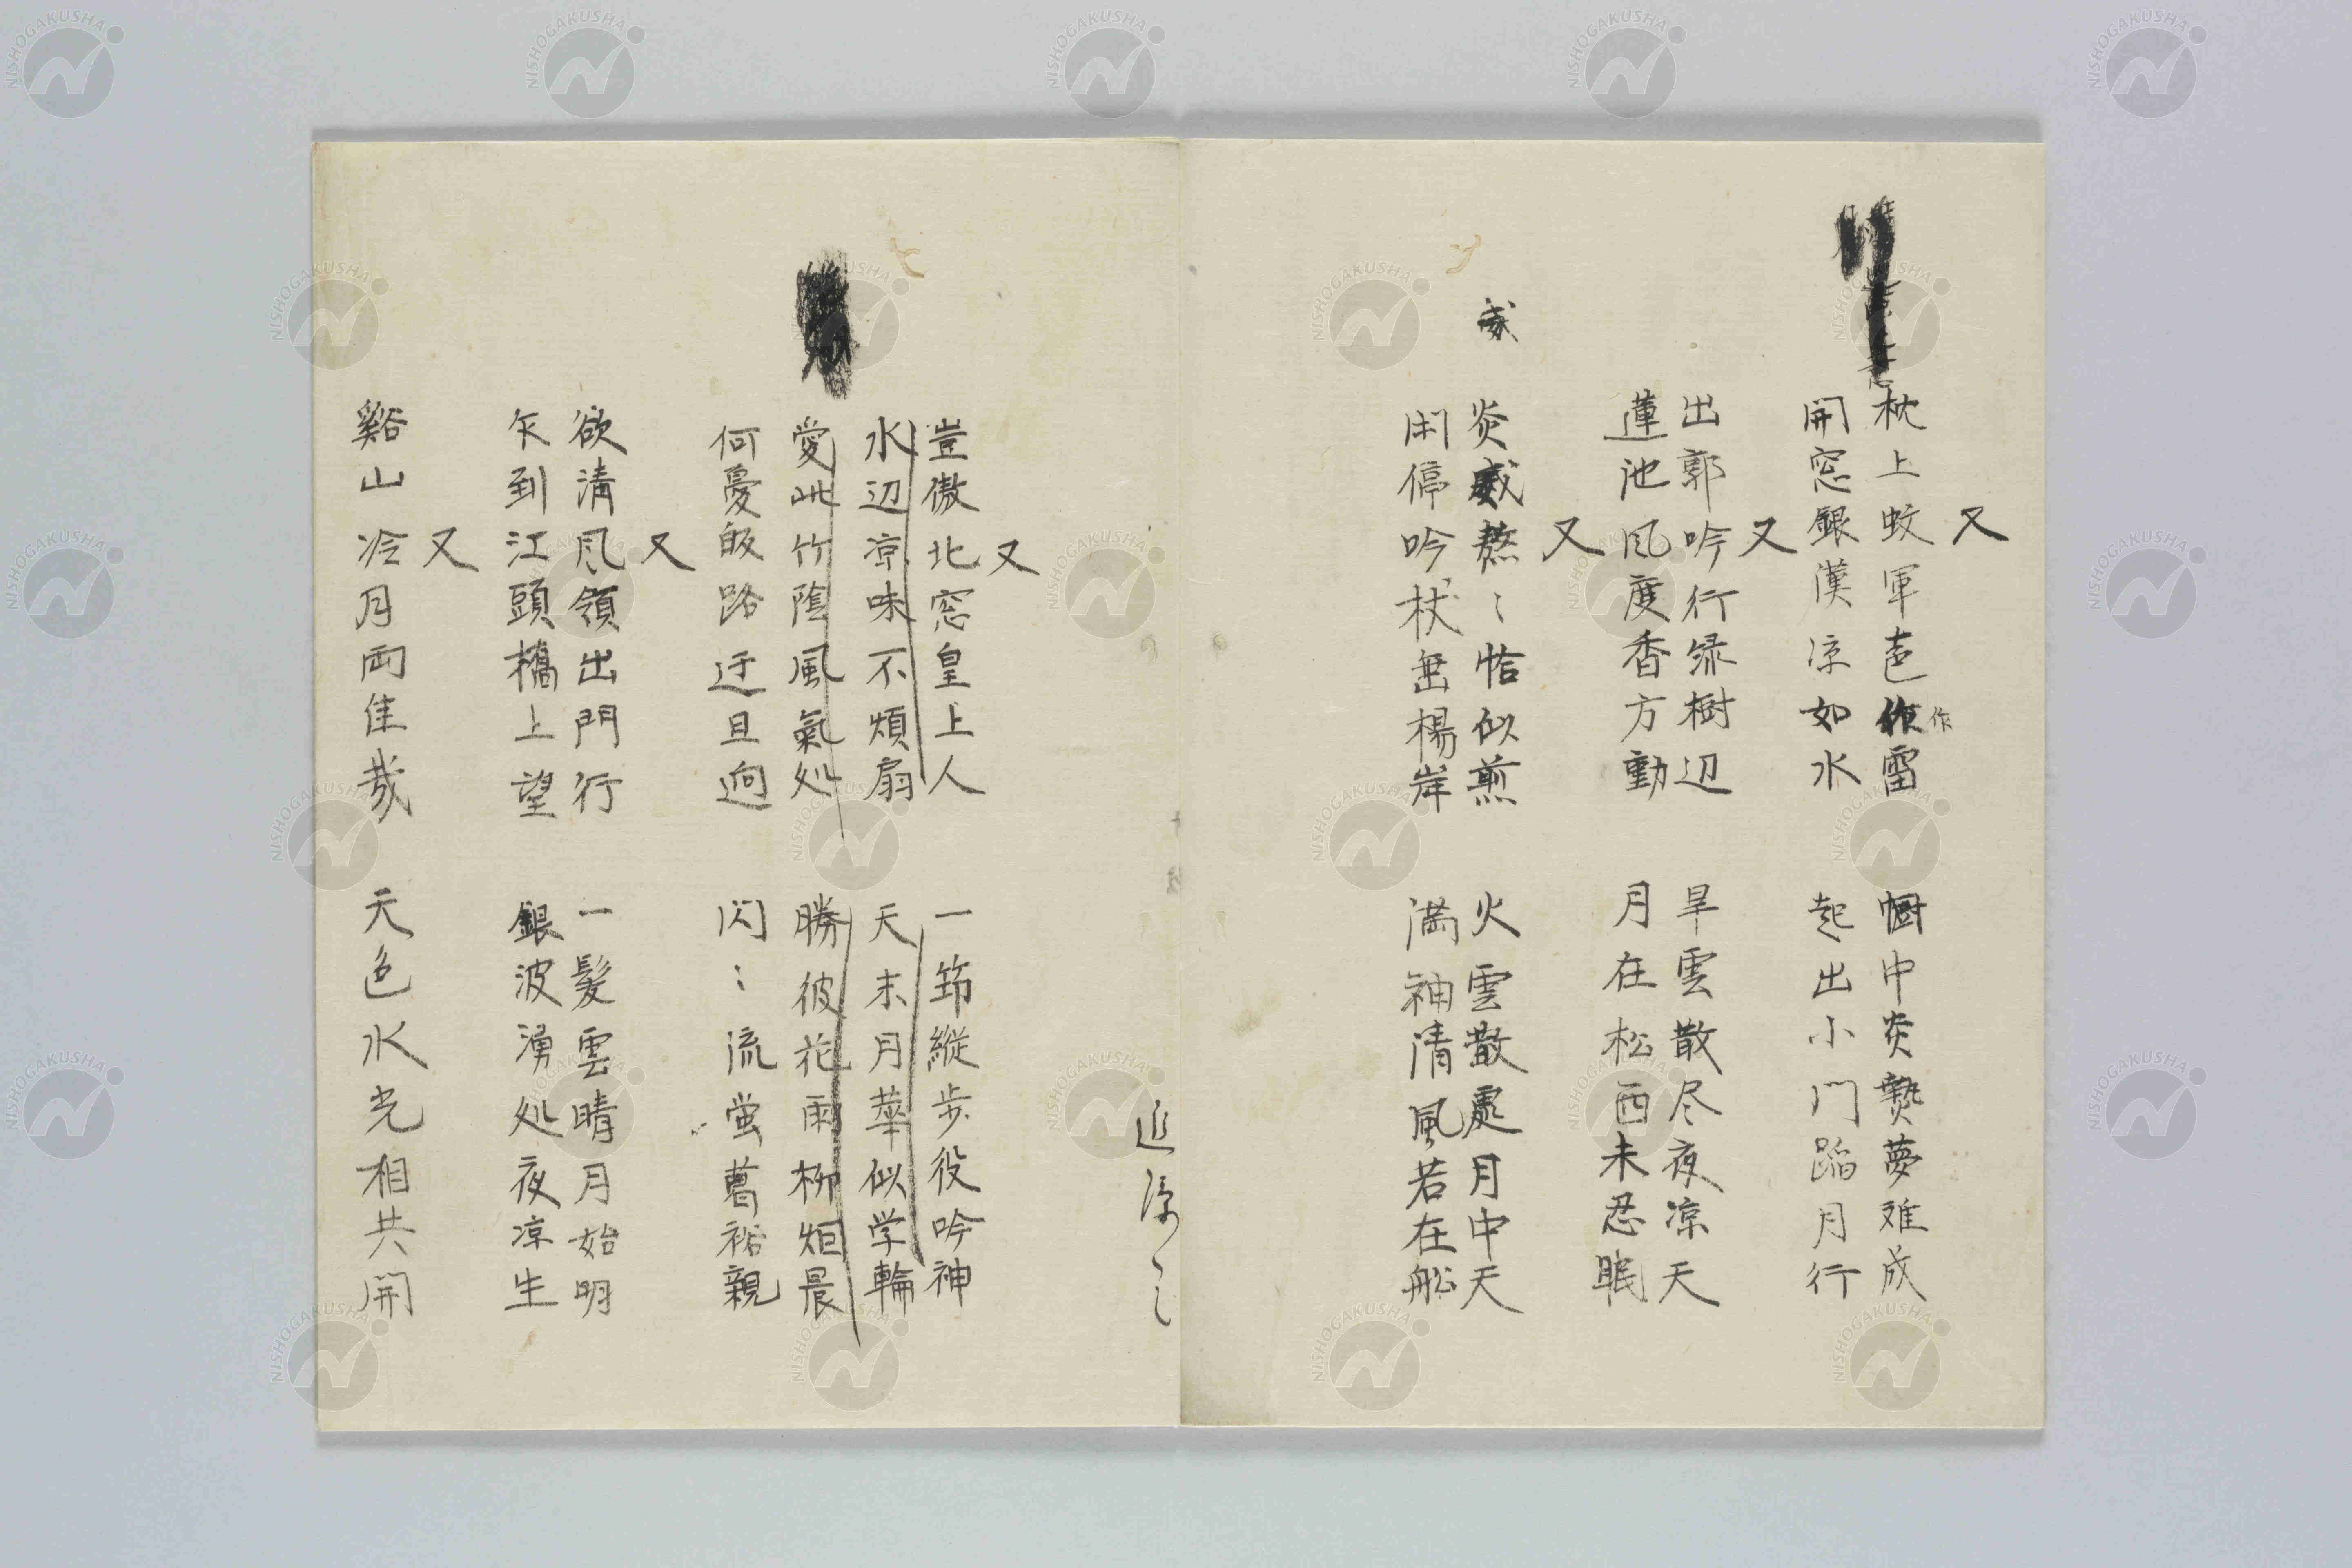 又
枕上蚊軍声作雷 幮中炎熱夢难成
作
開窓銀漢涼如水 起出小門蹈月行
又
出郭吟行緑樹辺 旱雲散尽夜涼天
蓮池風度香方動 月在松西未忍眠
又
炎威熬〻恰似煎 火雲散処月中天
威
閑停吟杖垂楊岸 満神清風若在船
追涼
又
豈傲北窓皇上人 一筇縦歩役吟神
水辺凉味不煩扇 天末月華似学輪
愛此竹陰風氣処 勝彼花雨柳烟晨
何憂皈路迂且迥 閃〻流蛍葛裕親
又
欲淸風領出門行 一髪雲晴月始明
乍到江頭橋上望 銀波湧処夜涼生
又
谿山冷月両佳哉 天色水光相共開
NISHOGAKUSHA